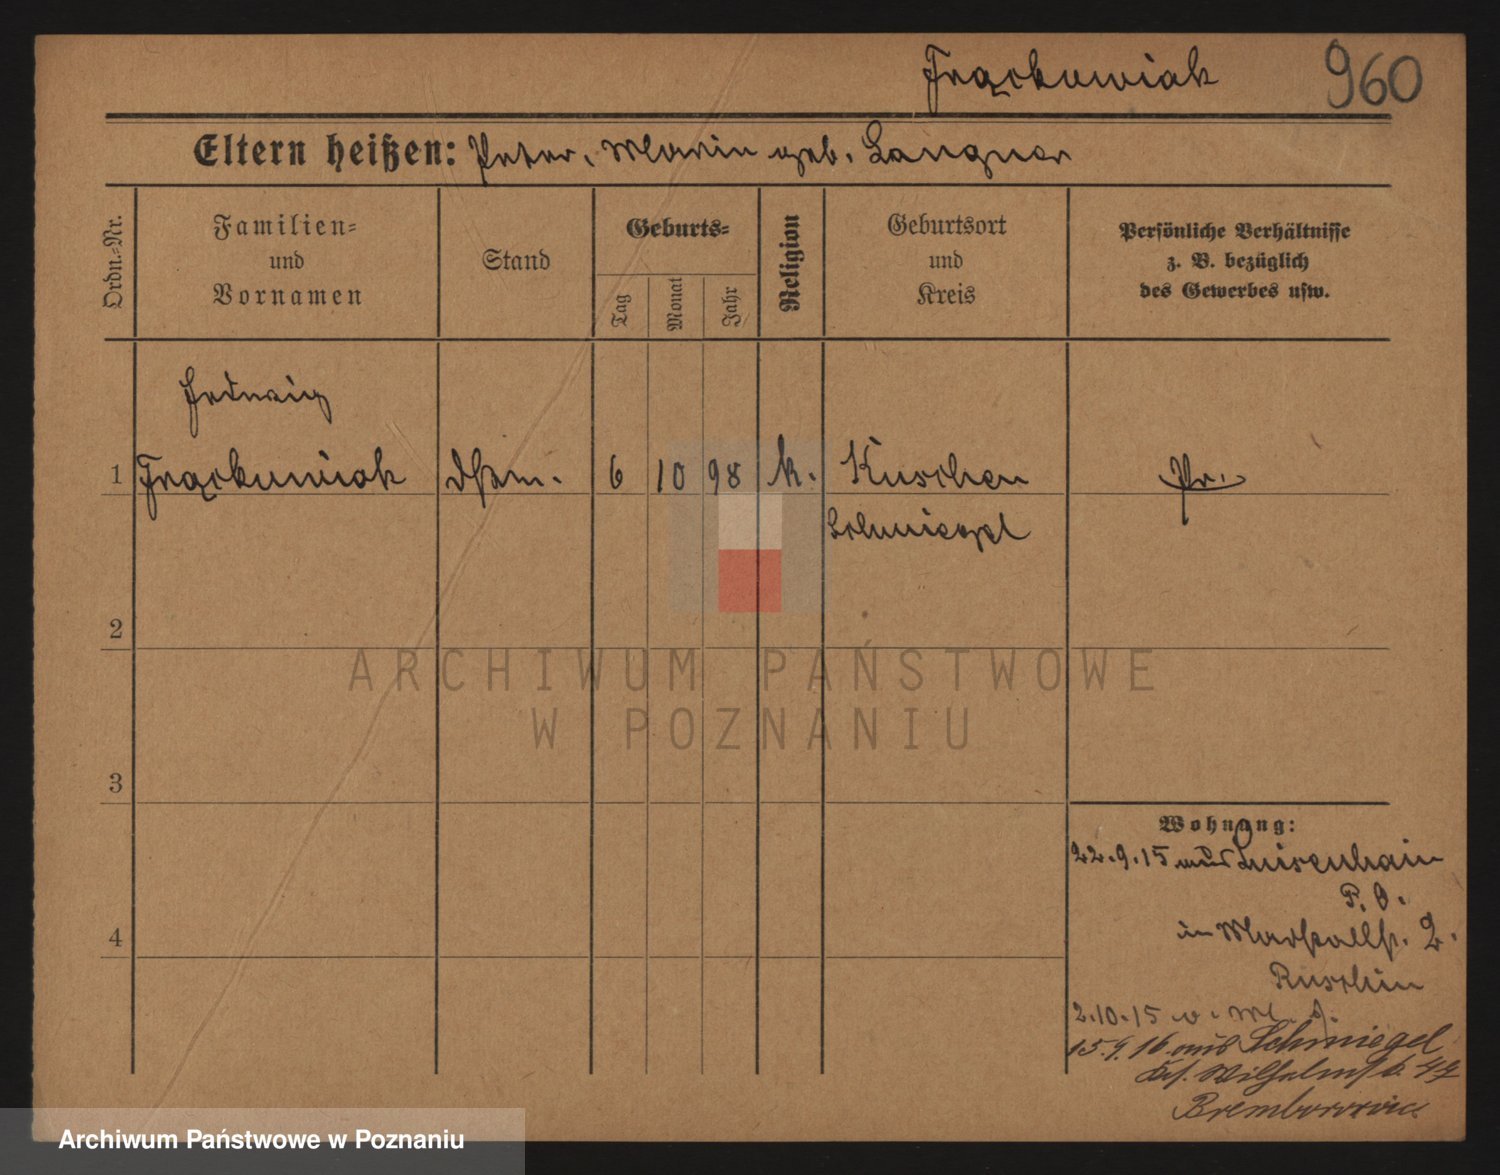 Frąckowiak 960
Eltern heißen: Peter, Maria geb. Langner
Ordn.-Nr.
Familien-
und
Vornamen
Stand
Geburts-
Tag
Monat
Jahr
Religion
Geburtsort
und
Kreis
Persönliche Verhältnisse
z. B. bezüglich
des Gewerbes usw.
Hedwig
1 Frąckowiak 6 10 98 k. Kuschen Pr.
Schmiegel
2
3
4
Wohnung:
22.9.15 aus Luisenhain
P. O.
in 2.
2.10.15 v.
15.9.16 aus Schmiegel
Wilhelmstr.
ARCHIWUM PAŃSTWOWE
W POZNANIU
Archiwum Państwowe w Poznaniu